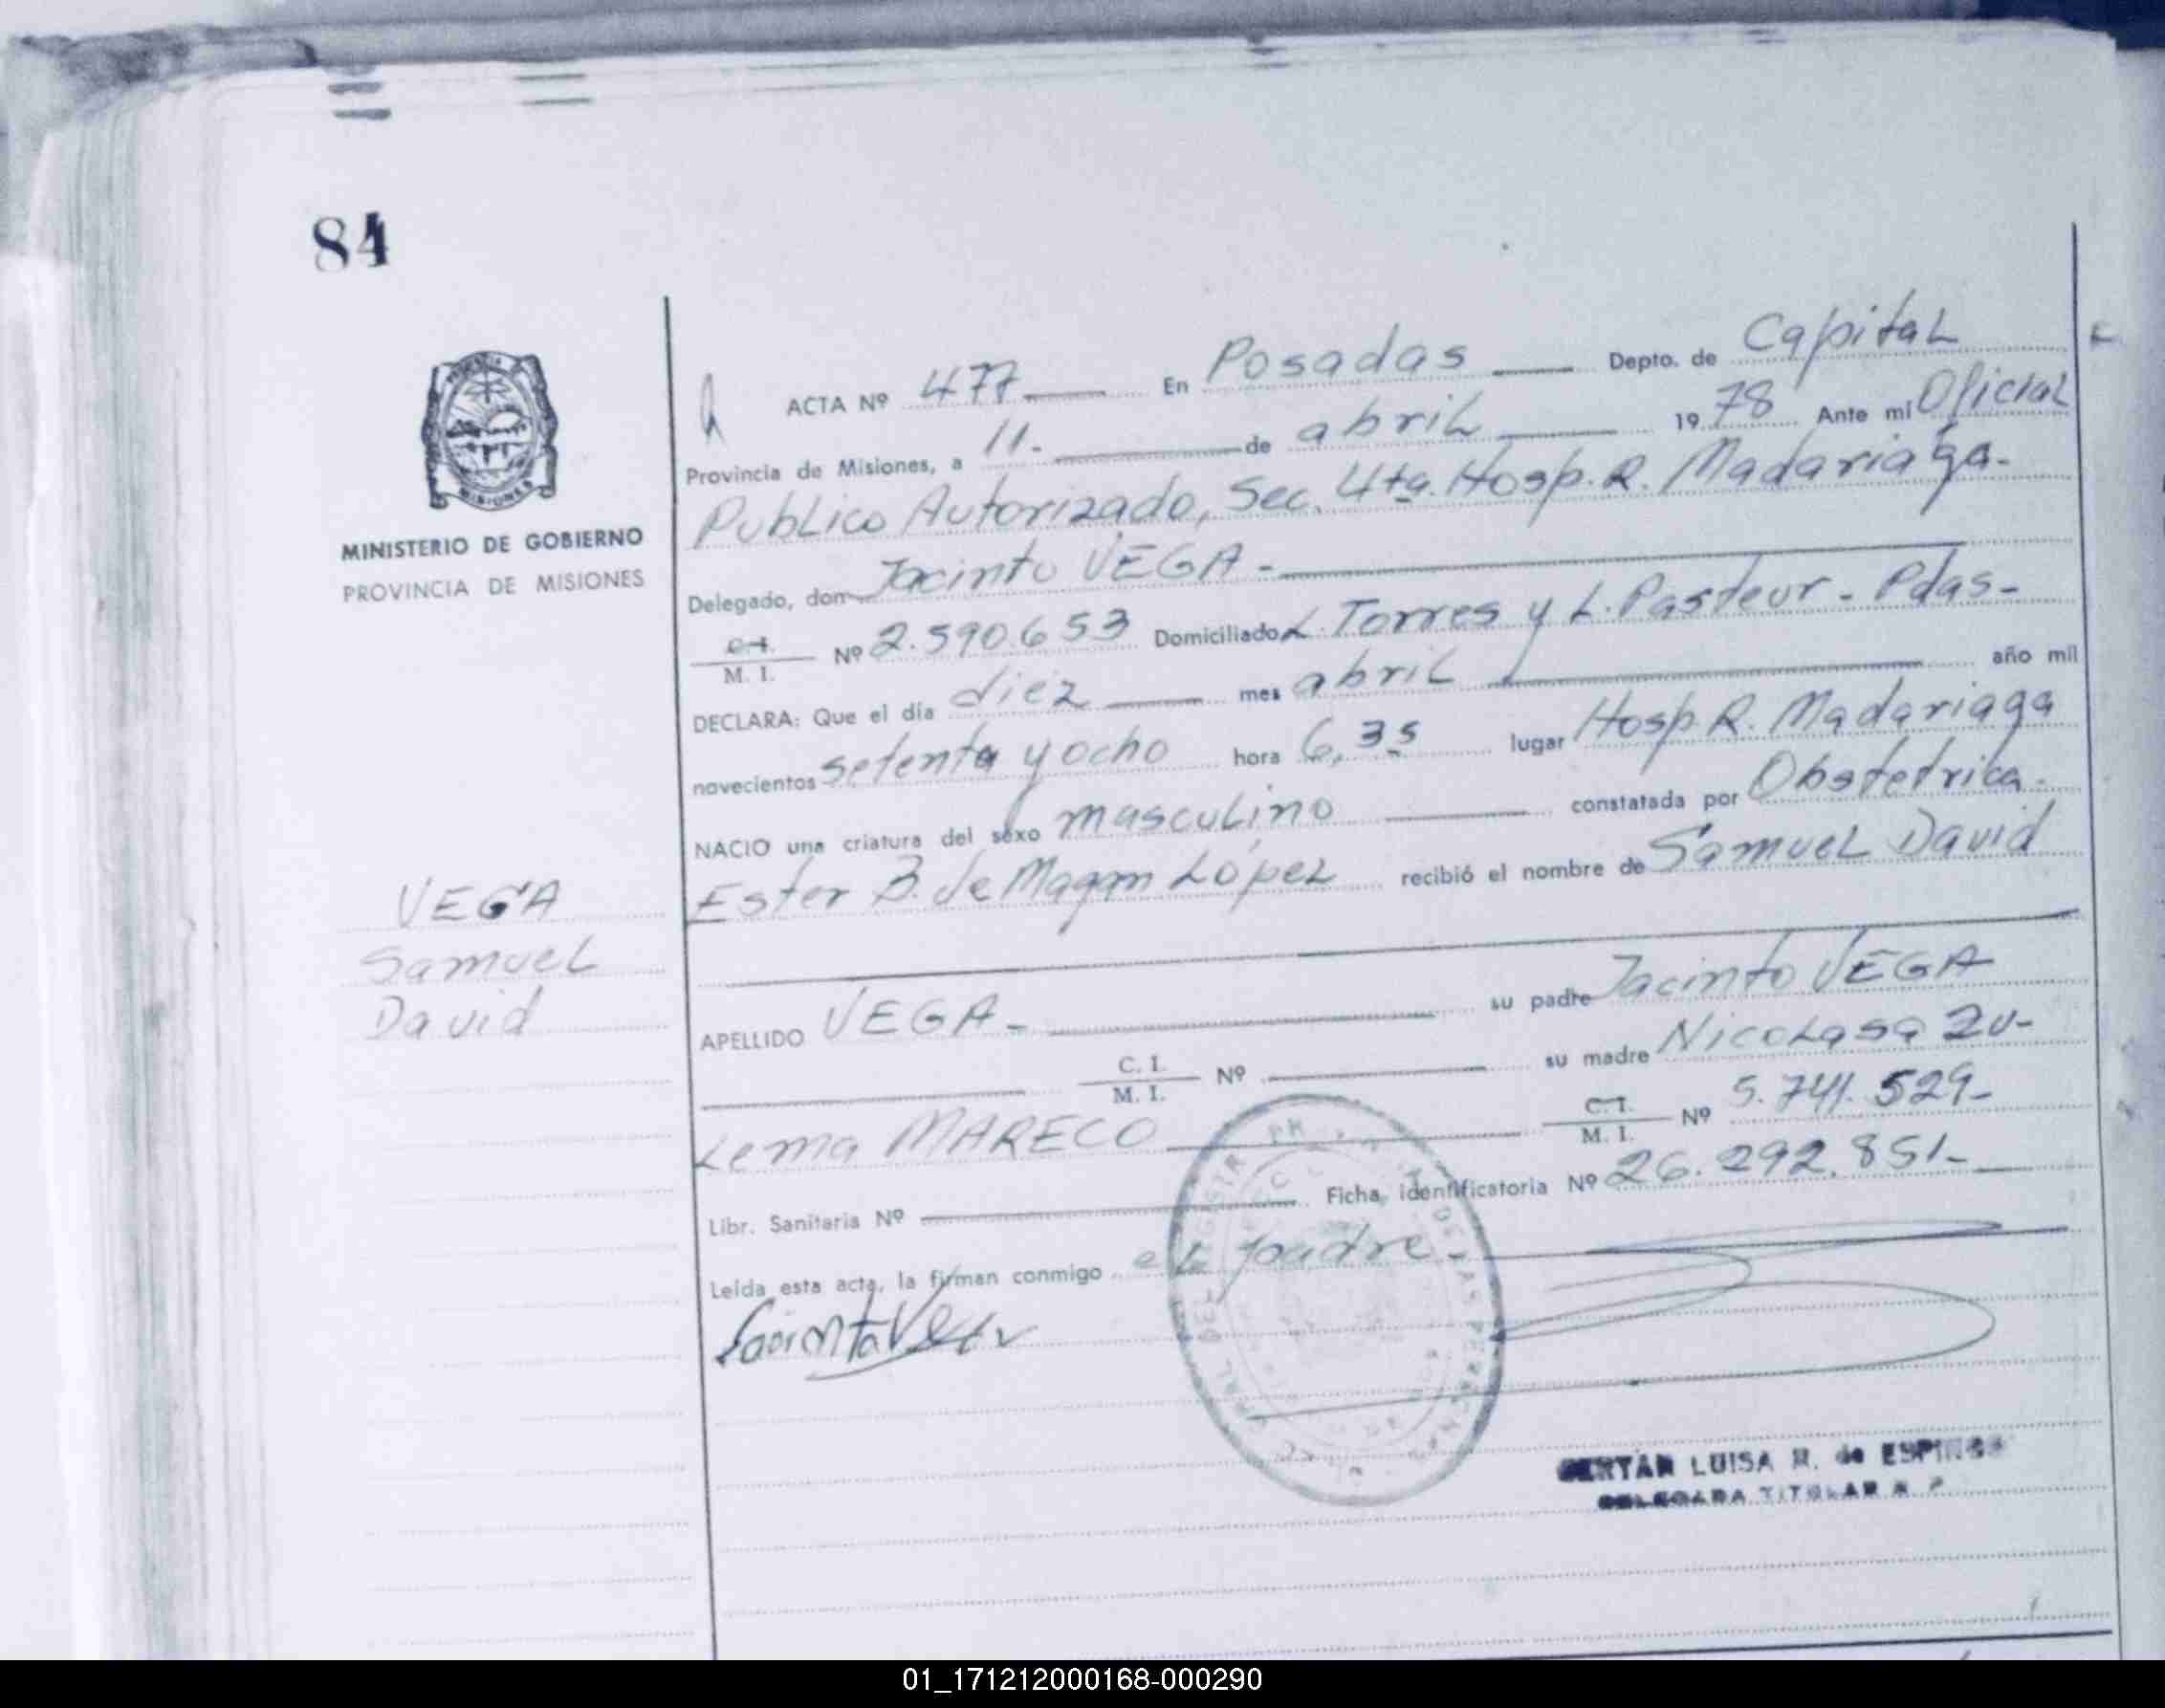 84
MISIONES
MINISTERIO DE GOBIERNO
PROVINCIA DE MISIONES
VEGA
Samuel
David
ACTA Nº 477 En Posadas Depto. de Capital
Provincia de Misiones, a 11.- de abril 1978 Ante mi Oficial
Publico Autorizado, Sec. 4ta. Hosp. R. Madariaga.-
Delegado, don Jacinto VEGA -
C.I. M. I. Nº 2.590.653 Domiciliado L. Torres y L. Pasteur - Pdas-
DECLARA: Que el día diez mes abril año mil
novecientos setenta y ocho hora 6,35 lugar Hosp. R. Madariaga
NACIO una criatura del sexo masculino constatada por Obstetrica.
Ester B. de Magan López recibió el nombre de Samuel David
APELLIDO VEGA - su padre Jacinto VEGA
C. I. M. I. Nº su madre Nicolasa Zu-
lema MARECO C.I. M. I. Nº 5.741.529-
Libr. Sanitaria Nº Ficha identificatoria Nº 26.292.851-
Leída esta acta, la firman conmigo el padre -
LUISA R. de
DELEGADA TITULAR
01_171212000168-000290